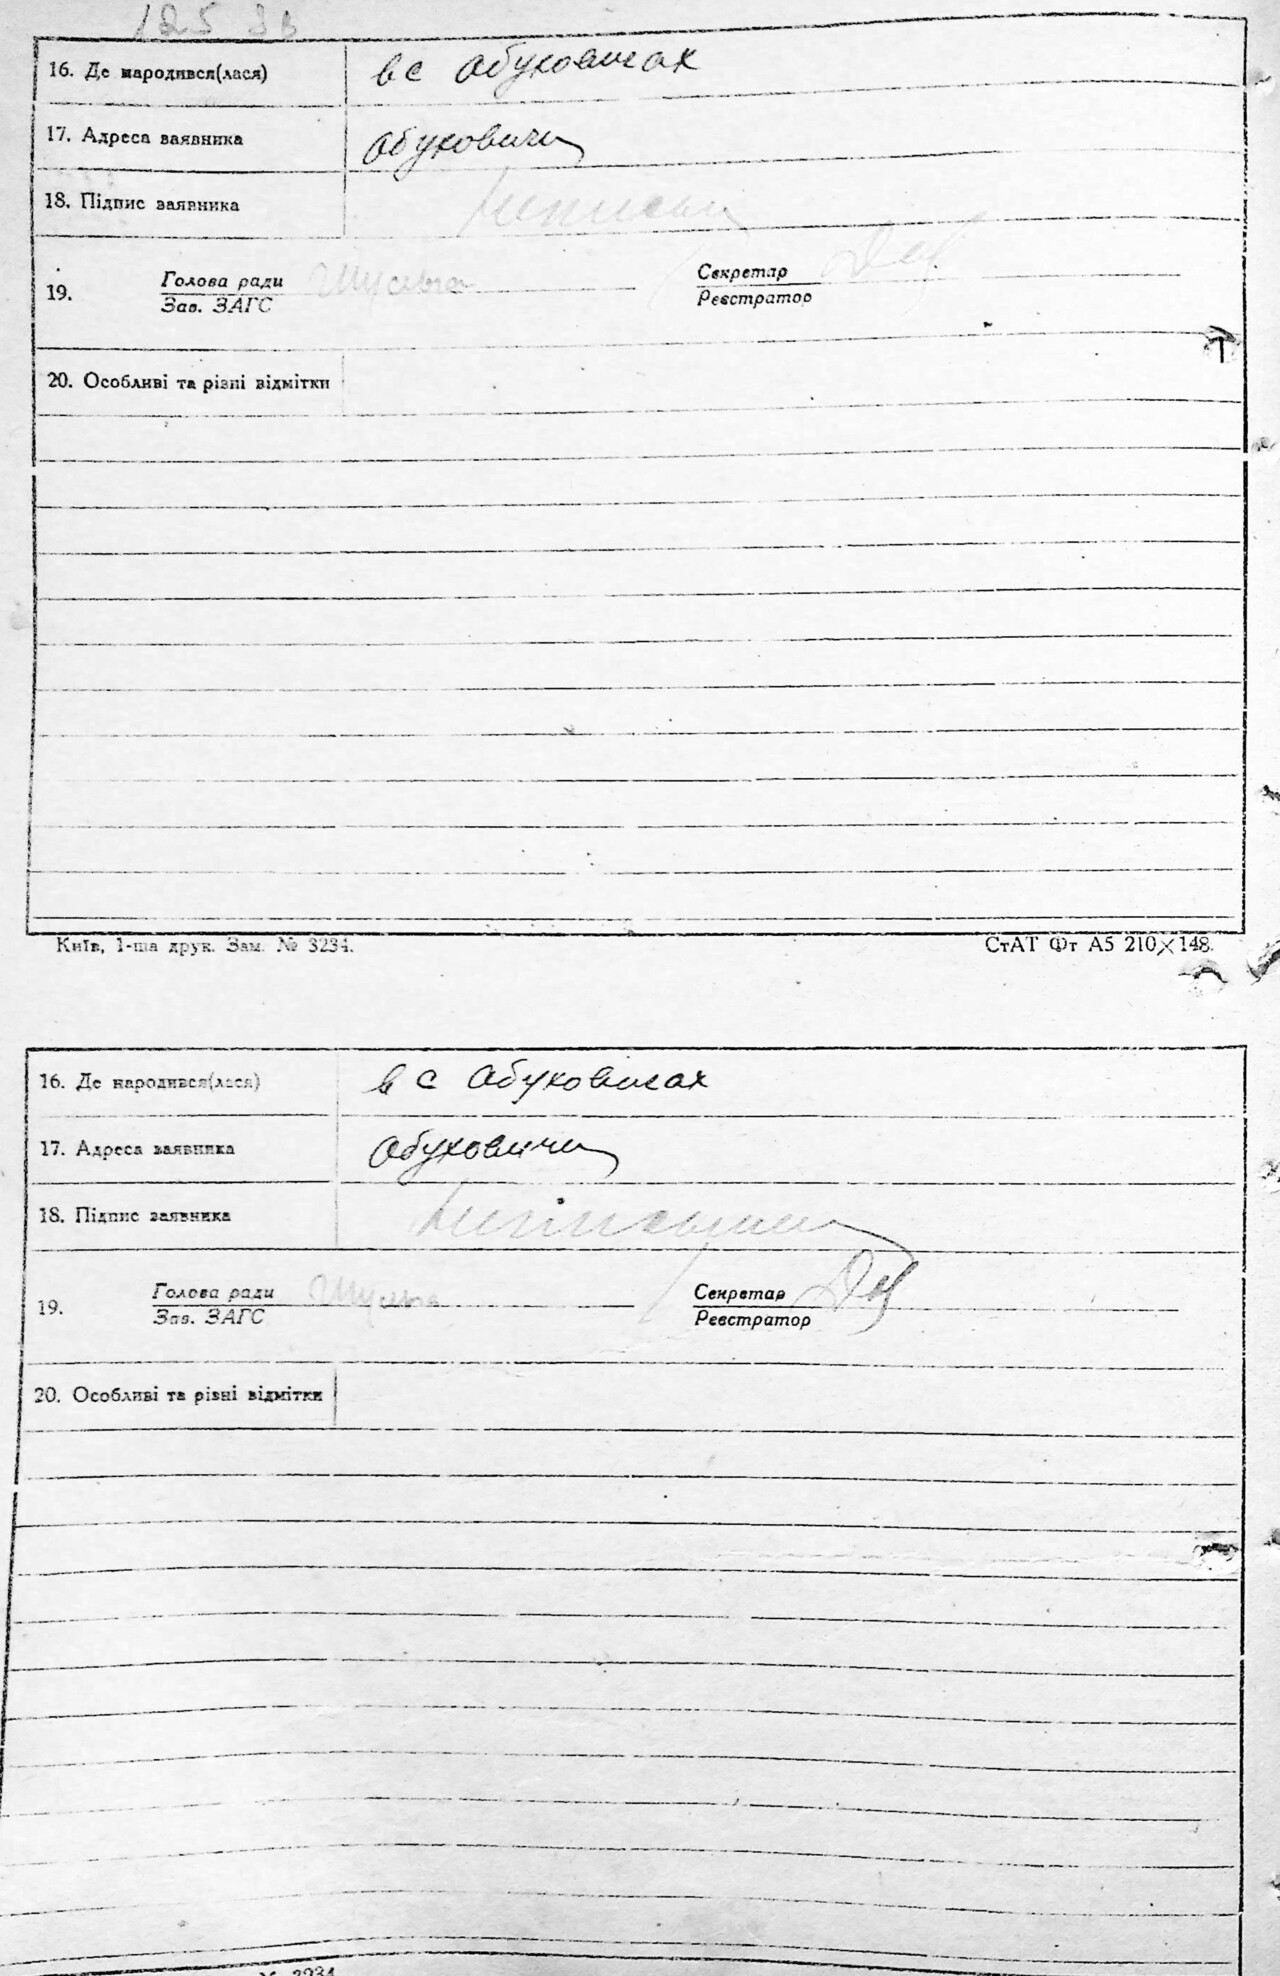 125 Зв
16. Де народився(лася) в с Обуковичах
17. Адреса заявника Обуховичи
18. Підпис заявника
19. Голова ради Секретар
Зав. ЗАГС Реєстратор
20. Особливі та різні відмітки
Київ, 1-ша друк. Зам. № 3234. СтАТ Фт А5 210×148.
16. Де народився(лася) в с Обуховичах
17. Адреса заявника Обуховичи
18. Підпис заявника
19. Голова ради Секретар
Зав. ЗАГС Реєстратор
20. Особливі та різні відмітки
№ 3234